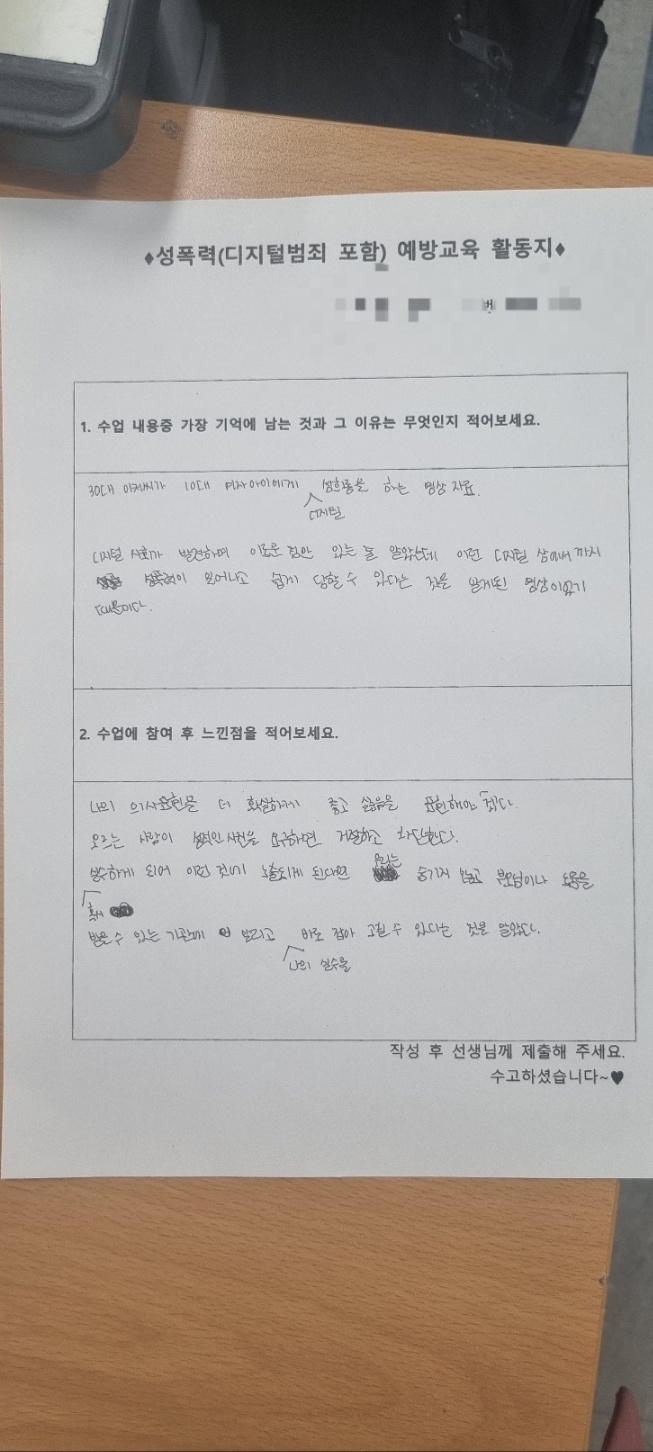 ♦성폭력(디지털범죄 포함) 예방교육 활동지♦
번
1. 수업 내용중 가장 기억에 남는 것과 그 이유는 무엇인지 적어보세요.
30대 아저씨가 10대 여자아이에게 디지털 성희롱을 하는 영상 자료.
디지털 사회가 발전하며 이로운 점만 있는 줄 알았는데 이런 디지털 상에서 까지
성폭력이 일어나고 쉽게 당할 수 있다는 것을 알게된 영상이었기
때문이다.
2. 수업에 참여 후 느낀점을 적어보세요.
나의 의사표현을 더 확실하게 좋고 싫음을 표현해야 겠다.
모르는 사람이 성적인 사진을 요구하면 거절하고 차단한다.
혹시 실수하게 되어 이런 것에 노출되게 된다면 우리는 숨기지 않고 부모님이나 도움을
받을 수 있는 기관에 알리고 나의 실수를 바로 잡아 고칠 수 있다는 것을 알았다.
작성 후 선생님께 제출해 주세요.
수고하셨습니다~♥